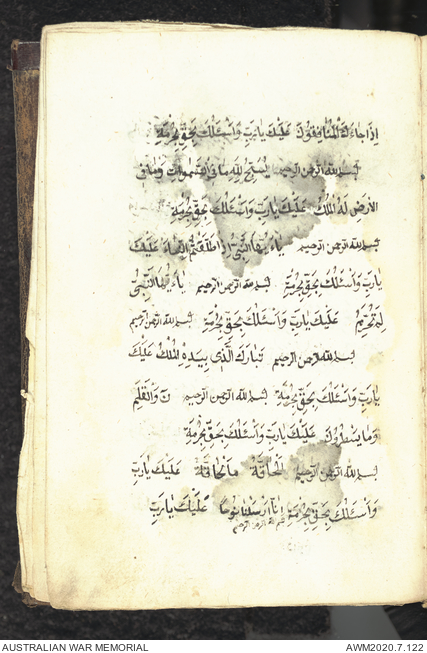 اِذَا جَاءَكَ الْمُنَافِقُونَ عَلَيْكَ يَارَبِّ وَاَسْئَلُكَ بِحَقِّ بِحُرْمَةِ
بسم الله الرحمن الرحيم يُسَبِّحُ لِلّٰهِ مَا فِى السَّمٰوَاتِ وَمَا فِى
الْاَرْضِ لَهُ الْمُلْكُ عَلَيْكَ يَارَبِّ وَاَسْئَلُكَ بِحَقِّ بِحُرْمَةِ
بسم الله الرحمن الرحيم يَا اَيُّهَا النَّبِىُّ اِذَا طَلَّقْتُمُ النِّسَاءَ عَلَيْكَ
يَارَبِّ وَاَسْئَلُكَ بِحَقِّ بِحُرْمَةِ بسم الله الرحمن الرحيم يَا اَيُّهَا النَّبِىُّ
لِمَ تُحَرِّمُ عَلَيْكَ يَارَبِّ وَاَسْئَلُكَ بِحَقِّ بِحُرْمَةِ بسم الله الرحمن الرحيم
بسم الله الرحمن الرحيم تَبَارَكَ الَّذِى بِيَدِهِ الْمُلْكُ عَلَيْكَ
يَارَبِّ وَاَسْئَلُكَ بِحَقِّ بِحُرْمَةِ بسم الله الرحمن الرحيم نٓ وَالْقَلَمِ
وَمَا يَسْطُرُونَ عَلَيْكَ يَارَبِّ وَاَسْئَلُكَ بِحَقِّ بِحُرْمَةِ
بسم الله الرحمن الرحيم اَلْحَاقَّةُ مَا الْحَاقَّةُ عَلَيْكَ يَارَبِّ
وَاَسْئَلُكَ بِحَقِّ بِحُرْمَةِ اِنَّا اَرْسَلْنَا نُوحًا عَلَيْكَ يَارَبِّ
بسم الله الرحمن الرحيم
AUSTRALIAN WAR MEMORIAL AWM2020.7.122